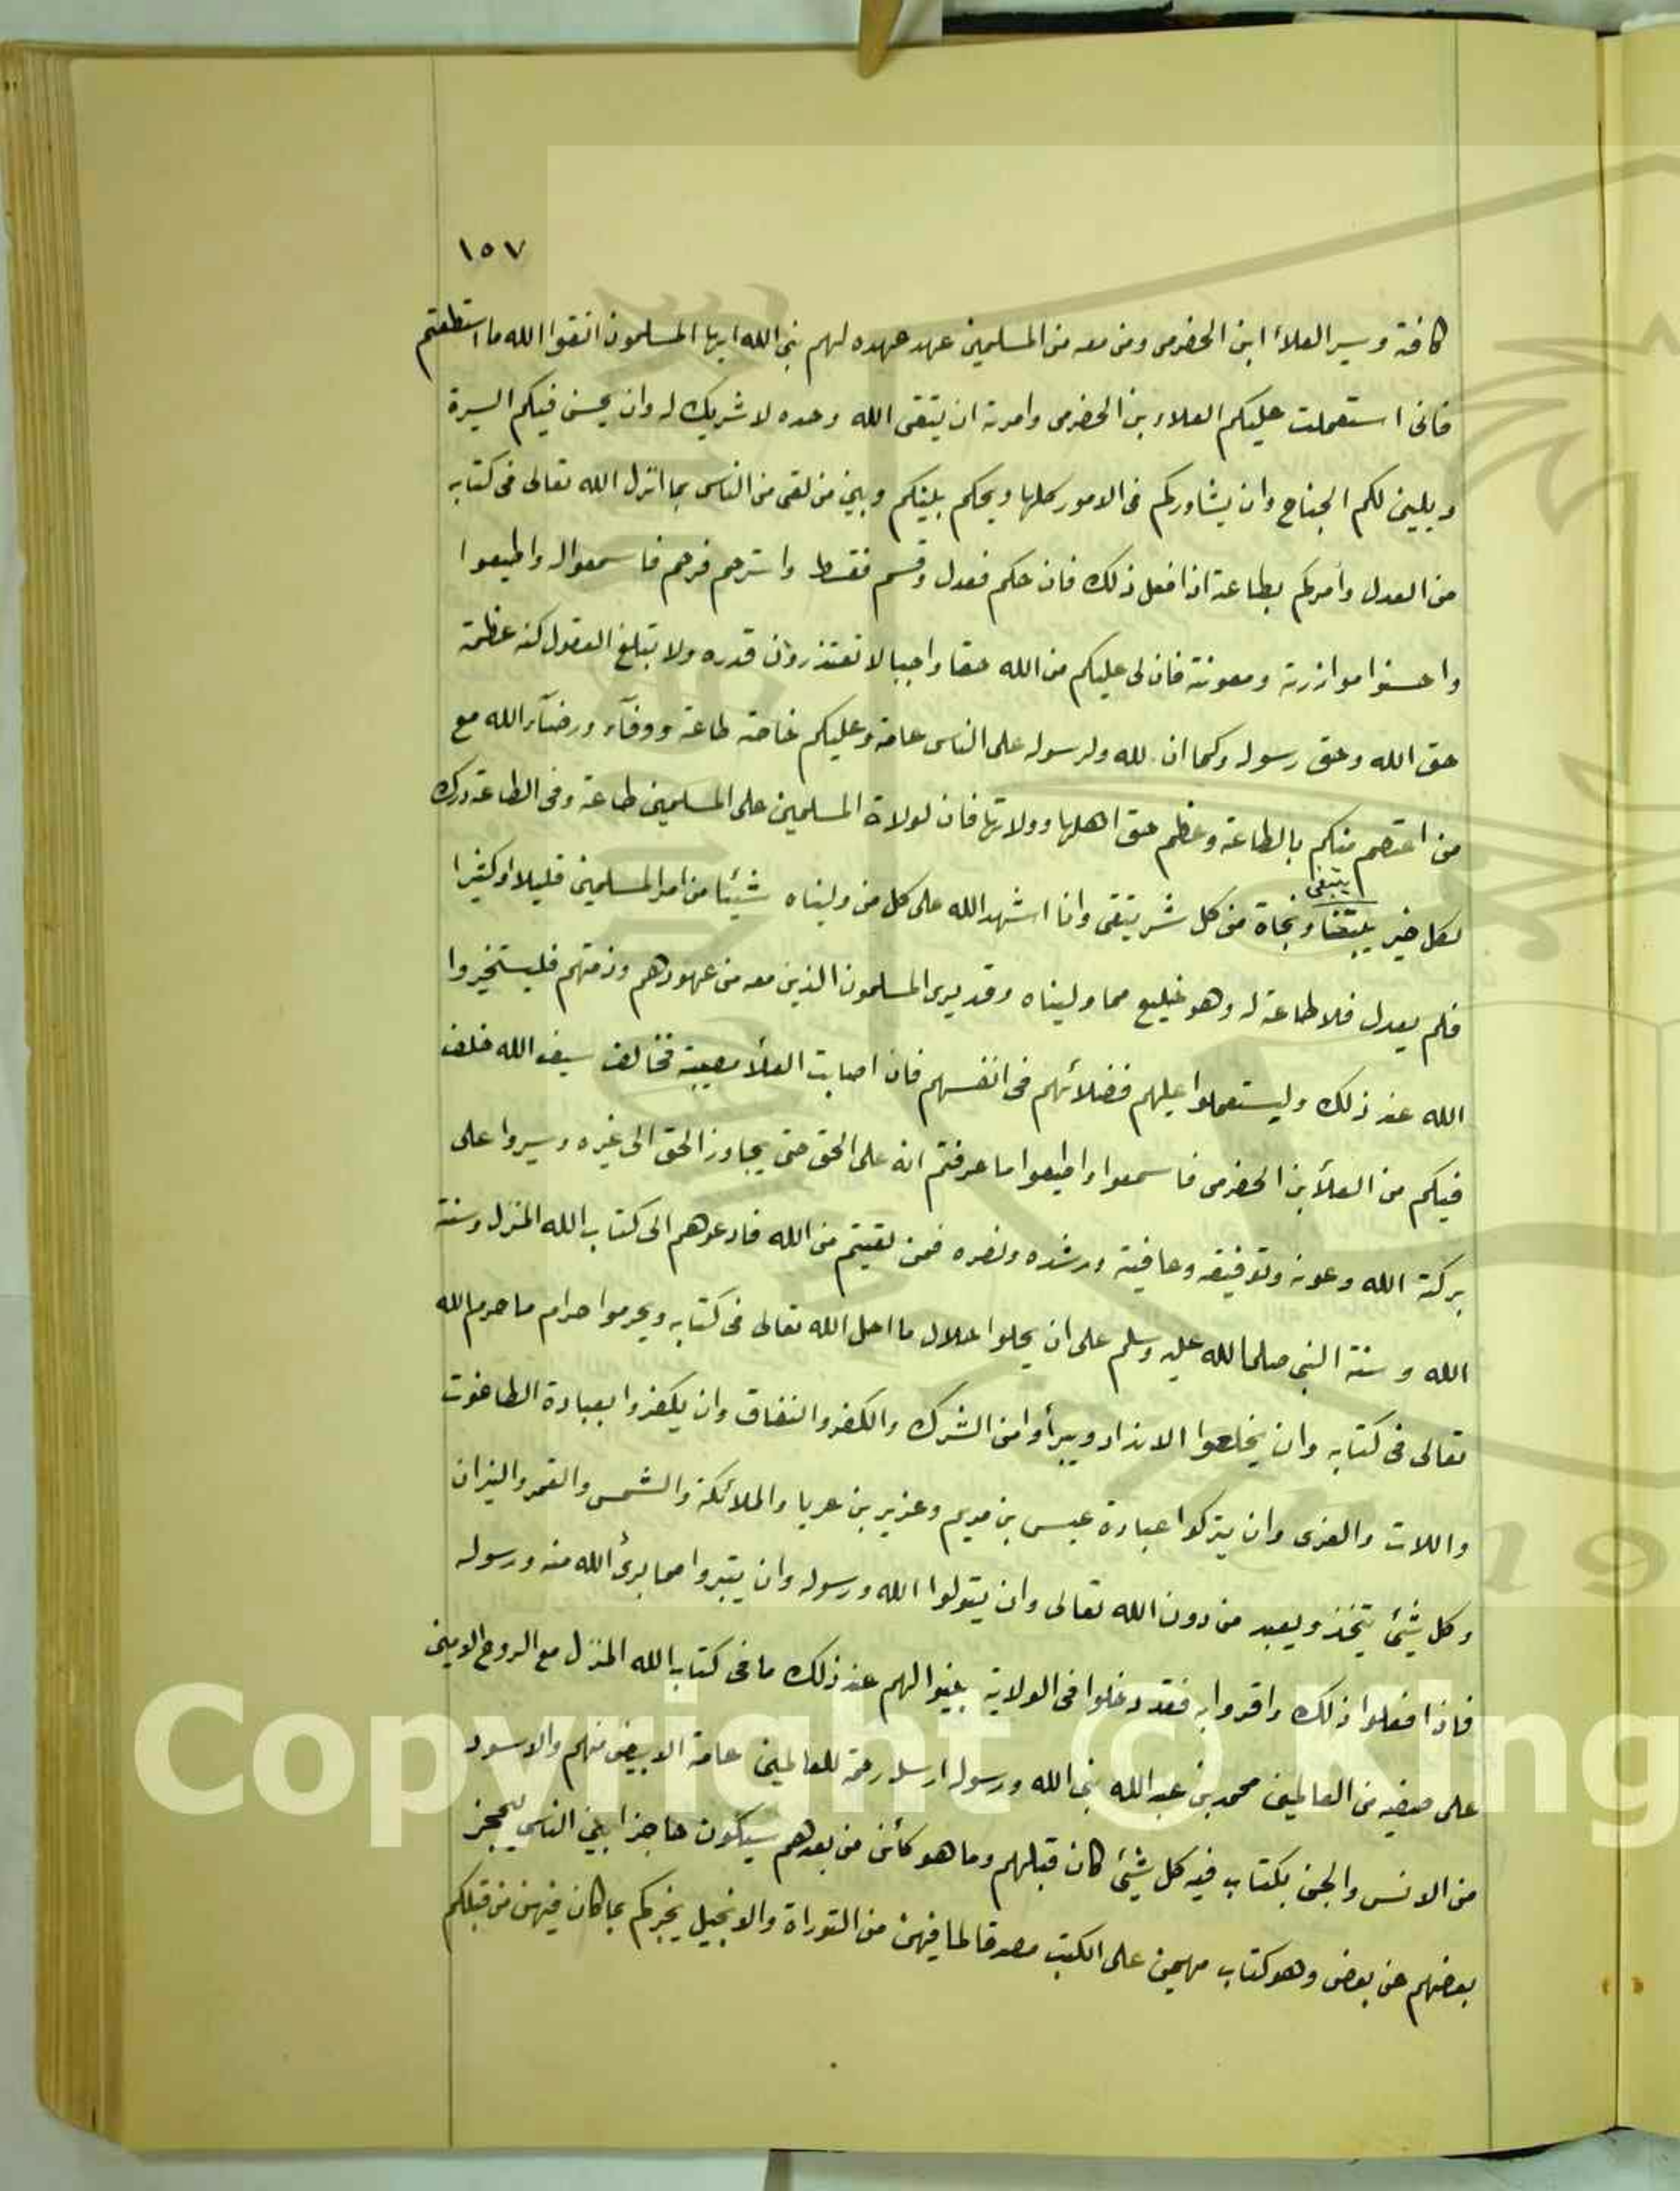 ١٥٧
كافة وسير العلاء ابن الحضرمى ومن معه من المسلمين عهد عهده لهم نبى الله ايها المسلمون اتقوا الله ما استطعتم
فانى استعملت عليكم العلاء بن الحضرمى وامرته ان يتقى الله وحده لا شريك له وان يحسن فيكم السيرة
ويلين لكم الجناح وان يشاوركم فى الامور كلها ويحكم بينكم وبين من لقى من الناس بما انزل الله تعالى فى كتابه
من العدل وأمركم بطاعته اذا فعل ذلك فان حكم فعدل وقسم فقسط واسترحم فرحم فاسمعوا له واطيعوا
واحسنوا موازرته ومعونته فان لى عليكم من الله حقا واجبا لا تقتدرون قدره ولا تبلغ العقول كنه عظمة
حق الله وحق رسوله وكما ان لله ولرسوله على الناس عامة وعليكم خاصة طاعة ووفآء ورضآء الله مع
من اعتصم منكم بالطاعة وعظم حق اهلها وولاتها فان لولاة المسلمين على المسلمين طاعة وفى الطاعة درك
يبتغى
لكل خير ونجاة من كل شر يتقى وانا اشهد الله على كل من وليناه شيئا من امر المسلمين قليلا او كثيرا
فلم يعدل فلا طاعة له وهو خليع مما وليناه وقد يرى المسلمون الذين معه من عهودهم وذمتهم فليستخيروا
الله عند ذلك وليستعملوا عليهم فضلائهم فى انفسهم فان اصابت العلأ مصيبة فخالد سيف الله خلف
فيكم من العلأ بن الحضرمى فاسمعوا واطيعوا ما عرفتم انه على الحق حتى يجاوز الحق الى غيره وسيروا على
بركة الله وعونه وتوفيقه وعافيته ورشده ونصره فمن لقيتم من الله فادعوهم الى كتاب الله المنزل وسنة
الله وسنة النبى صلى الله عليه وسلم على ان يحلوا حلال ما احل الله تعالى فى كتابه ويحرموا حرام ما حرم الله
تعالى فى كتابه وان يخلعوا الانداد ويبرأوا من الشرك والكفر والنفاق وان يكفروا بعبادة الطاغوت
واللات والعزى وان يتركوا عبادة عيسى بن مريم وعزير بن عريا والملائكة والشمس والقمر والنيران
وكل شيئ يتخذ ويعبد من دون الله تعالى وان يتولوا الله ورسوله وان يتبروا مما برئ الله منه ورسوله
فاذا فعلوا ذلك واقروا به فقد دخلوا فى الولاية بينوا لهم عند ذلك ما فى كتاب الله المنزل مع الروح الامين
على صفيه من العالمين محمد بن عبد الله نبى الله ورسوله ارسله رحمة للعالمين عامة الابيض منهم والاسود
من الانس والجن بكتاب فيه كل شيئ كان قبلهم وما هو كأئن من بعدهم سيكون حاجزا بين الناس ليحجز
بعضهم عن بعض وهو كتاب مهيمن على الكتب مصدقا لما فيهن من التوراة والانجيل يخبركم بما كان فيهن من قبلكم
Copyright © King